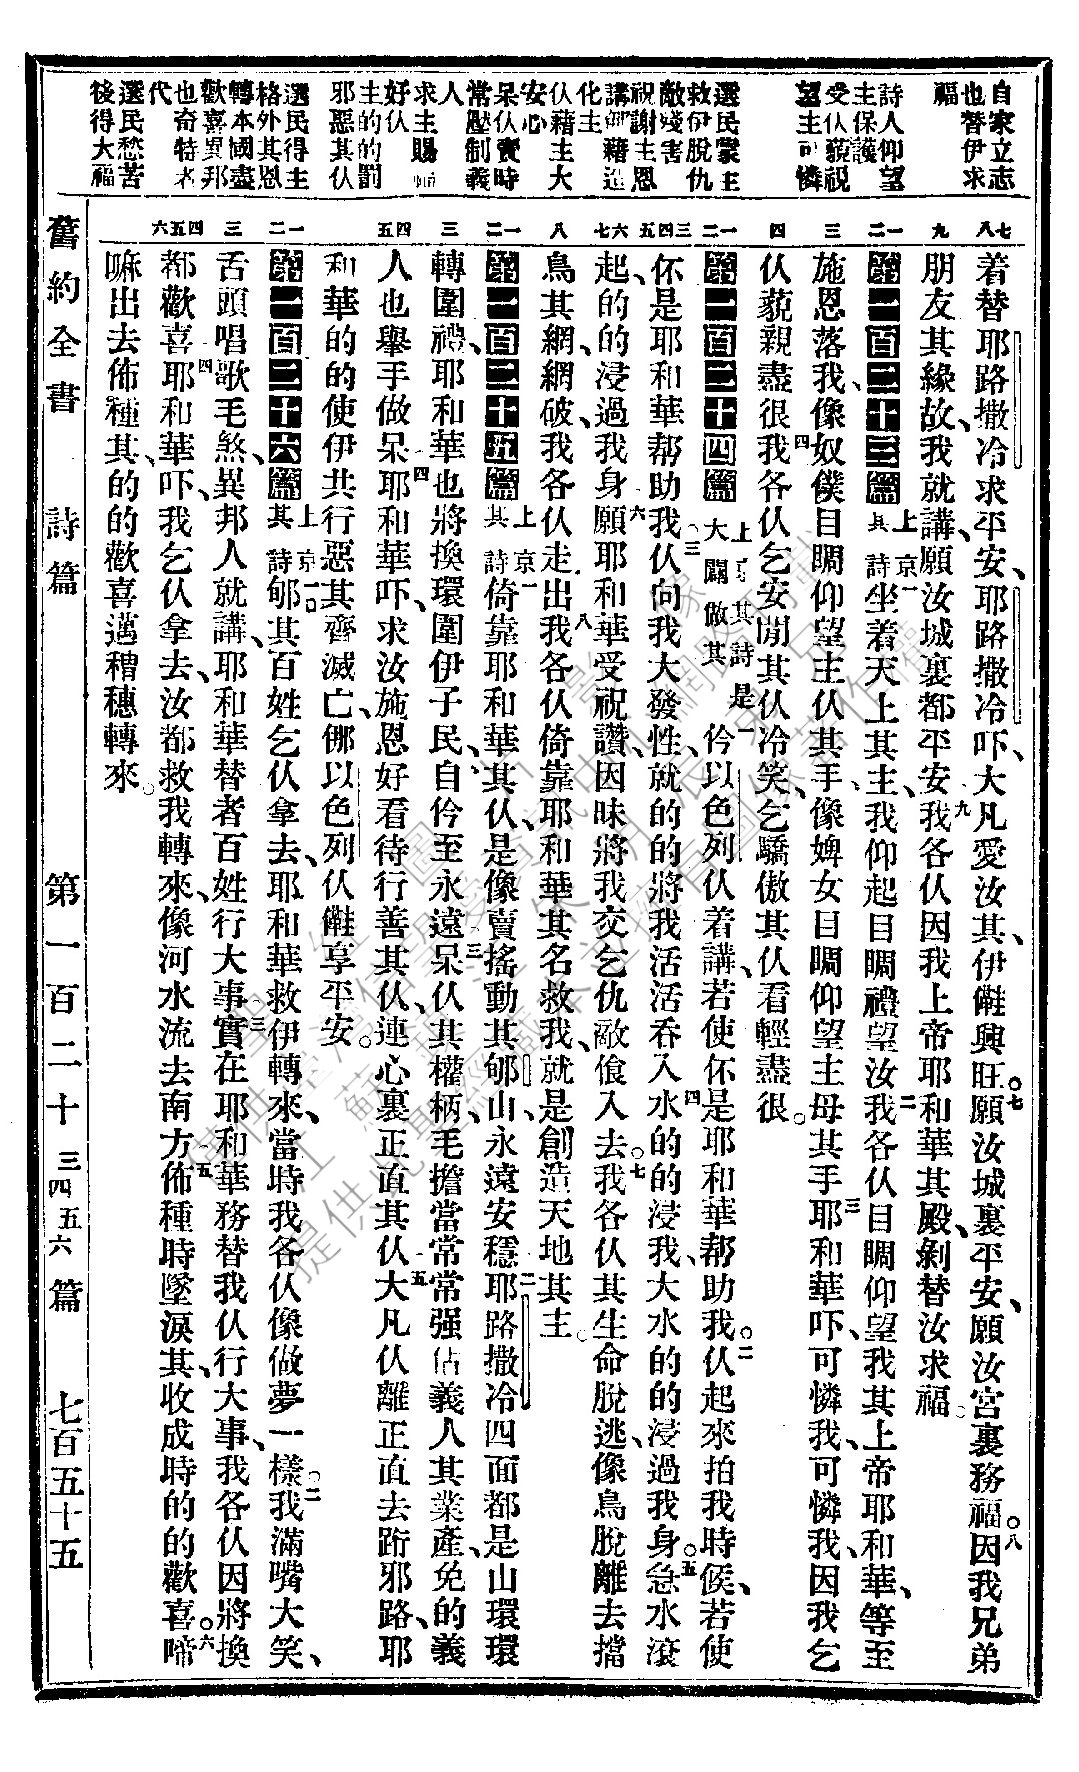 自家立志
也替伊求
福
詩人仰望
主保護
受仫藐視
望主可憐
選民蒙主
救伊脫仇
敵殘害
祝謝主恩
化主
仫藉主大
安心
呆仫實時
常壓制義
人
求主賜
好仫
主的的罰
邪惡其仫
選民得主
格外其恩
轉本國盡
歡喜異邦
也奇特者
代
選民愁苦
後得大福
七八
着替耶路撒冷求平安、耶路撒冷吓、大凡愛汝其、伊儺興旺。七願汝城裏平安、願汝宮裏務福。八因我兄弟
九
朋友其緣故、我就講、願汝城裏都平安、九我各仫因我上帝耶和華其殿、剝替汝求福。
一二
第一百二十三篇 上京其詩 一坐着天上其主、我仰起目睭禮望汝、二我各仫目睭仰望我其上帝耶和華、等至
三
施恩落我、像奴僕目睭仰望主仫其手、像婢女目睭仰望主母其手、三耶和華吓、可憐我、可憐我、因我乞
四
仫藐視盡很、四我各仫乞安閒其仫冷笑、乞驕傲其仫看輕盡很。
一二
第一百二十四篇 上京其詩是大闢做其 一伱以色列仫着講、若使伓是耶和華帮助我。二仫起來拍我時候、若使
三四五
伓是耶和華帮助我、三仫向我大發性、就的的將我活活吞入、四水的的浸我、大水的的浸過我身。五急水滾
六七
起、的的浸過我身、六願耶和華受祝讚、因昧將我交乞仇敵飡入去。七我各仫其生命脫逃、像鳥脫離去擋
八
鳥其網、網破、我各仫走出、八我各仫倚靠耶和華其名救我、就是創造天地其主。
一二
第一百二十五篇 上京其詩 一倚靠耶和華其仫、是像賣搖動其郇山、永遠安穩、二耶路撒冷四面都是山環環
三
轉圍禮、耶和華也將換環圍伊子民、自伱至永遠、三呆仫其權柄、毛擔當常常强佔義人其業產、免的義
四五
人也舉手做呆、四耶和華吓、求汝施恩好看待行善其仫、連心裏正直其仫、五大凡仫離正直去跴邪路、耶
和華的的使伊共行惡其齊滅亡、㑚以色列仫儺享平安。
一二
第一百二十六篇 上京其詩 一郇其百姓乞仫拿去、耶和華救伊轉來、當時我各仫像做夢一樣。二我滿嘴大笑、
三
舌頭唱歌毛煞、異邦人就講、耶和華替者百姓行大事、三實在耶和華務替我仫行大事、我各仫因將換
四五六
都歡喜、四耶和華吓、我乞仫拿去、汝都救我轉來、像河水流去南方、五佈種時墜淚其、收成時的的歡喜。六啼
嘛出去佈種其、的的歡喜邁穭穗轉來。
舊約全書 詩篇 第一百二十三四五六篇 七百五十五